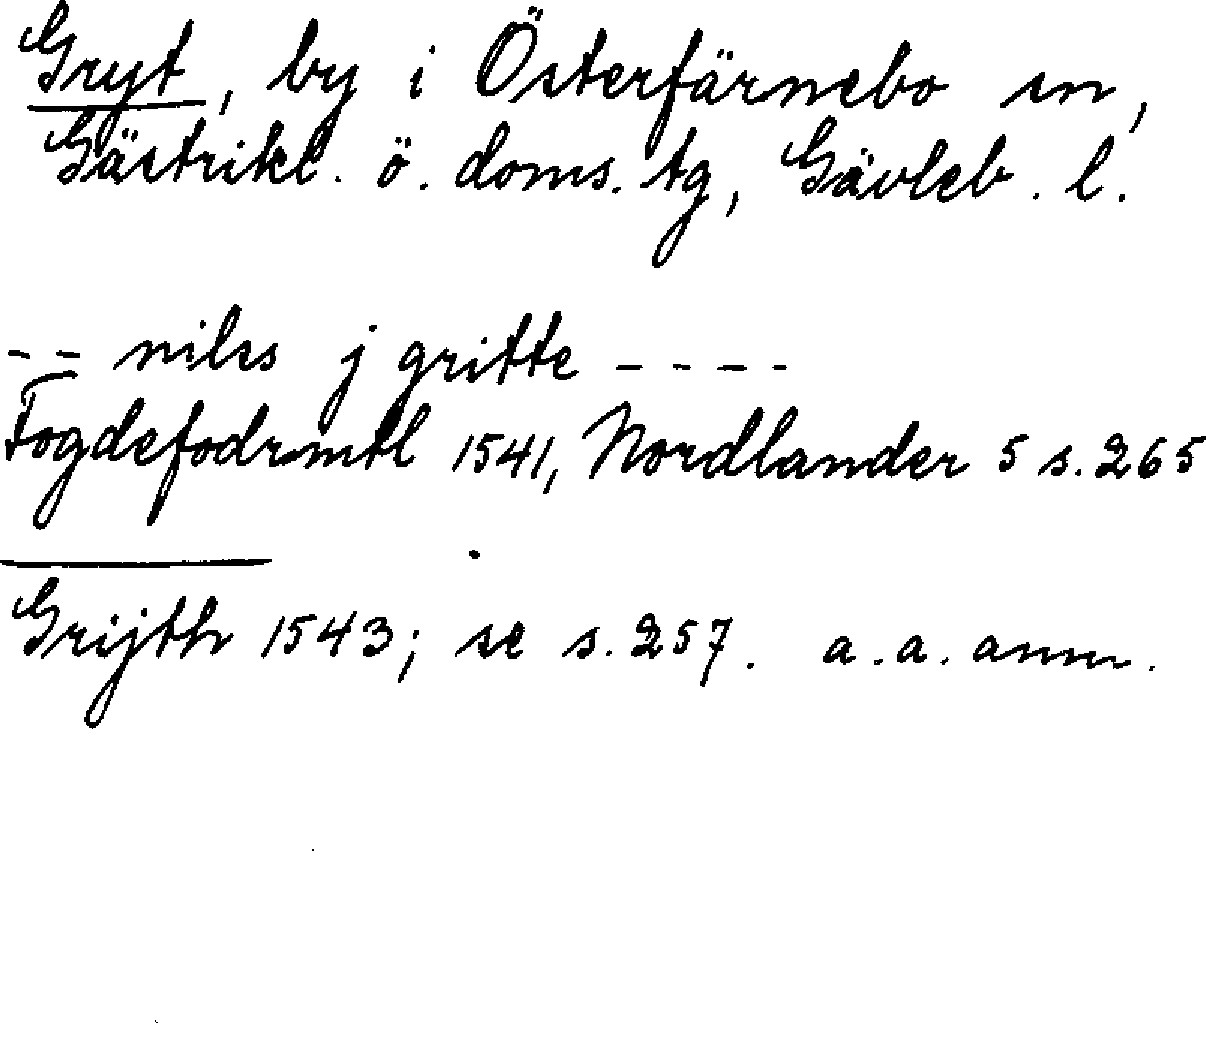 Gryt, by i Österfärnebo sn,
Gästrikl. ö. doms. tg, Gävleb. l.
-- nilss j gritte ----
Fogdefodrmtl 1541, Nordlander 5 s. 265
Grijth 1543; se s. 257. a. a. anm.